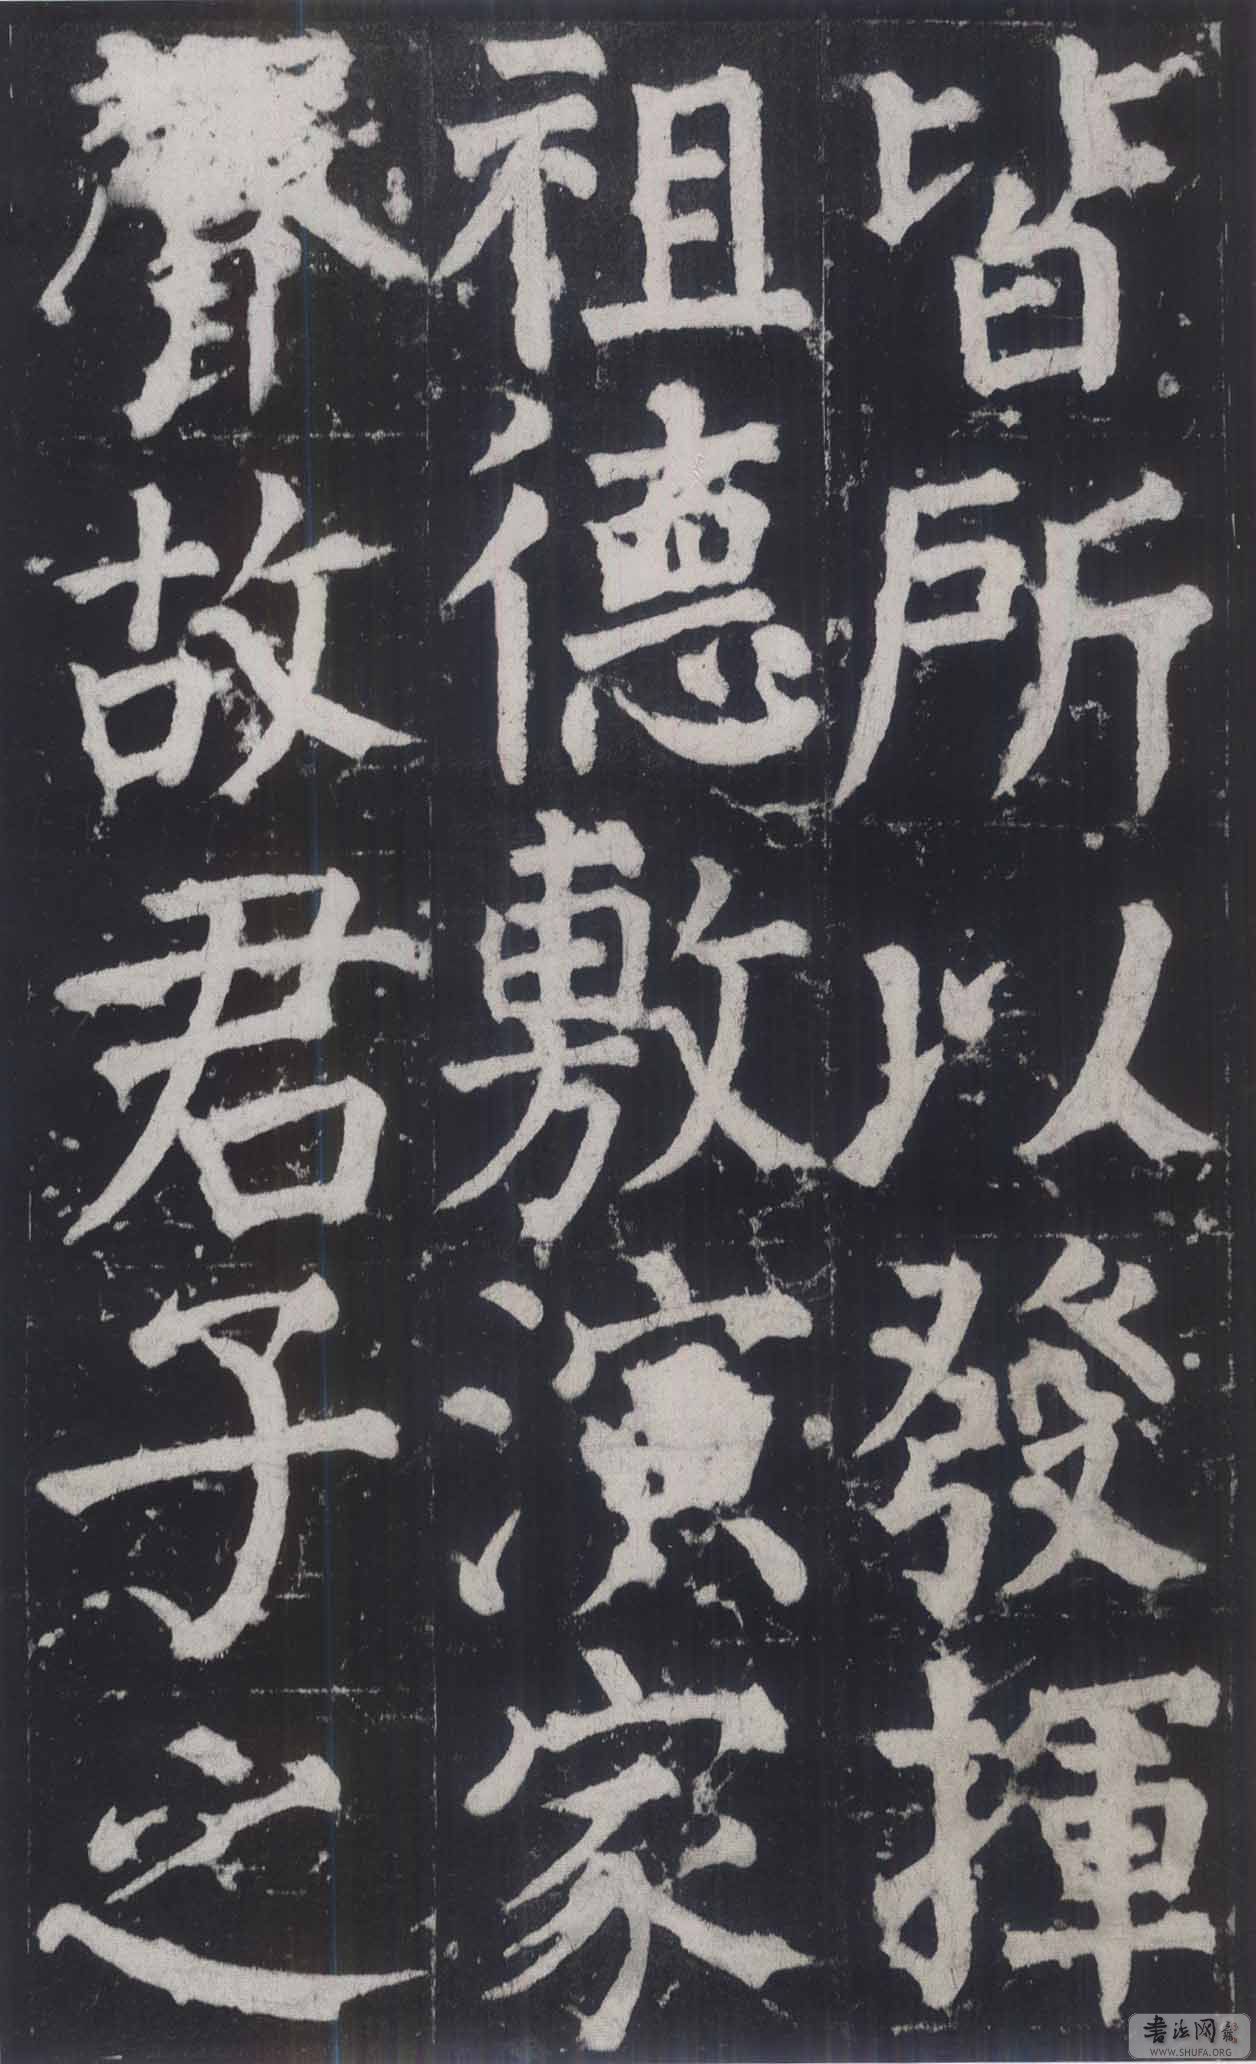 皆所以發揮
祖德敷演家
聲故君子之
書法网
WWW.SHUFA.ORG